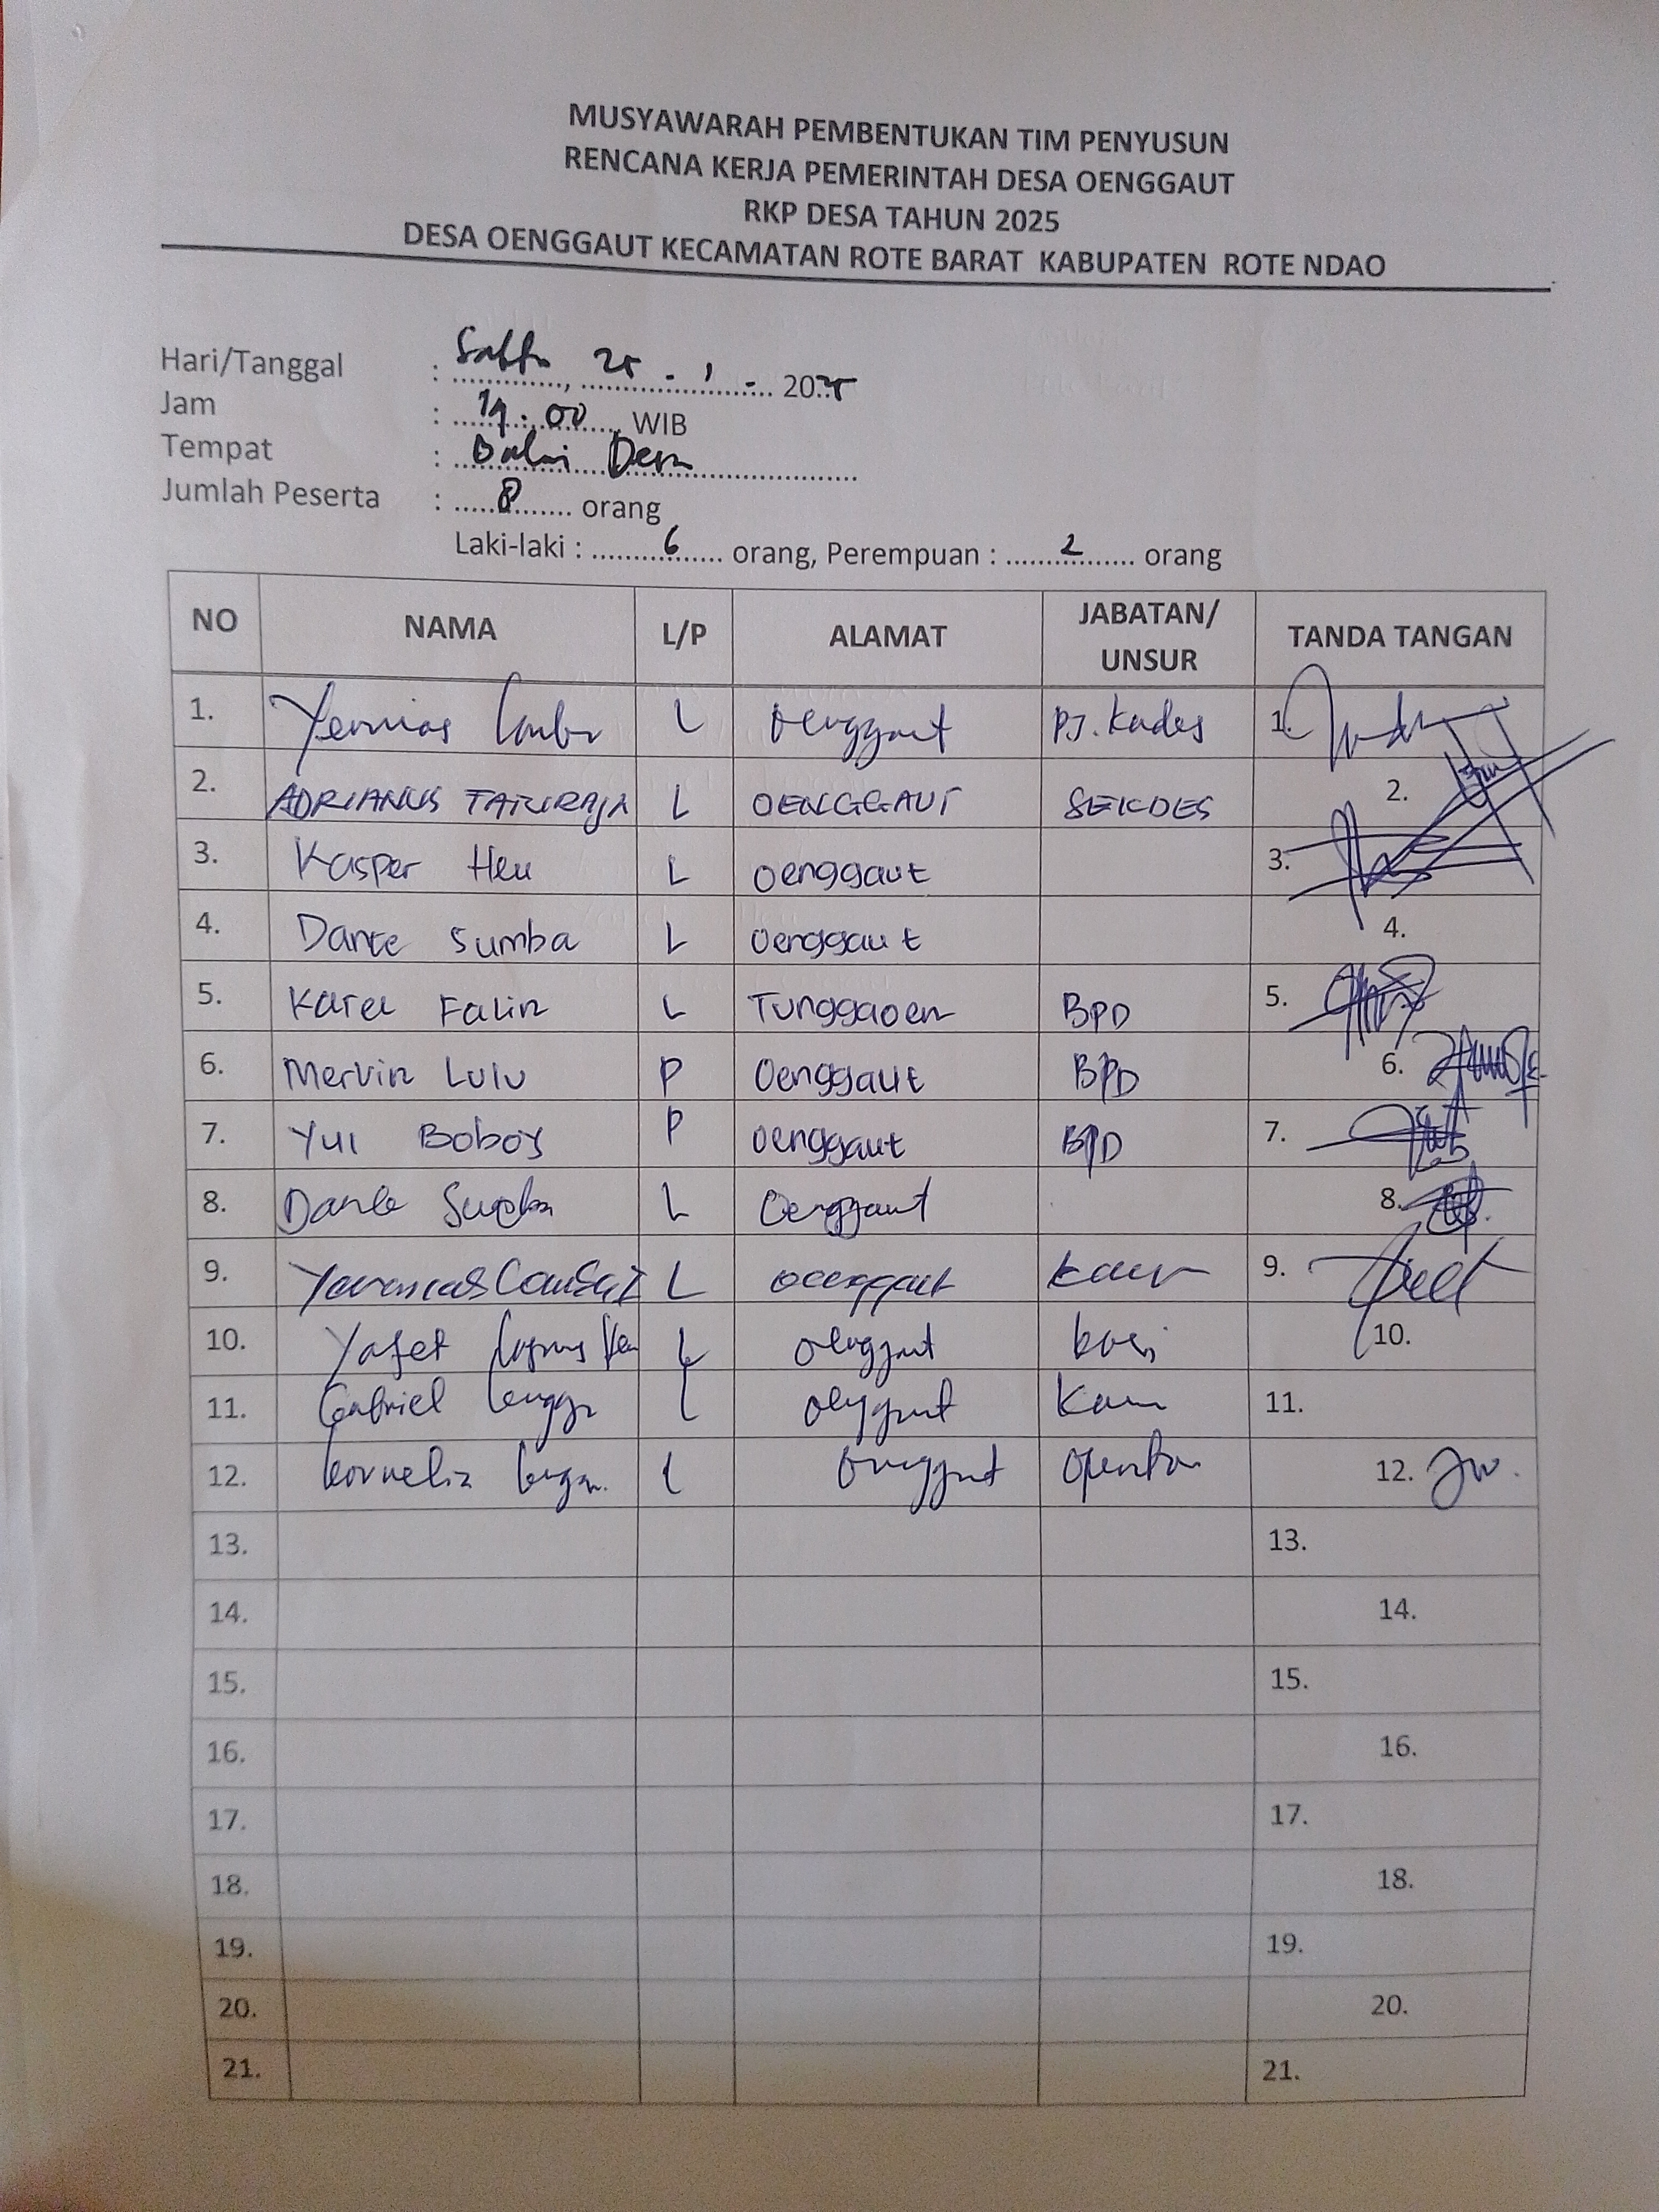 MUSYAWARAH PEMBENTUKAN TIM PENYUSUN
RENCANA KERJA PEMERINTAH DESA OENGGAUT
RKP DESA TAHUN 2025
DESA OENGGAUT KECAMATAN ROTE BARAT KABUPATEN ROTE NDAO
Hari/Tanggal : Sabtu, 25 - 1 - 2025
Jam : 19.00 WIB
Tempat : Balai Desa
Jumlah Peserta : 8 orang
Laki-laki : 6 orang, Perempuan : 2 orang
NO NAMA L/P ALAMAT JABATAN/ UNSUR TANDA TANGAN
1. Yermias L Oenggaut PJ. Kades 1.
2. ADRIANUS L OENGGAUT SEKDES 2.
3. Kasper Heu L Oenggaut 3.
4. Dance Sumba L Oenggaut 4.
5. Karel Falin L Tunggaoen BPD 5.
6. Mervin Lulu P Oenggaut BPD 6.
7. Yul Boboy P Oenggaut BPD 7.
8. L Oenggaut 8.
9. L Oenggaut Kaur 9.
10. Yafet L Oenggaut 10.
11. Gabriel L Oenggaut Kaur 11.
12. Kornelis L Oenggaut Operator 12.
13. 13.
14. 14.
15. 15.
16. 16.
17. 17.
18. 18.
19. 19.
20. 20.
21. 21.